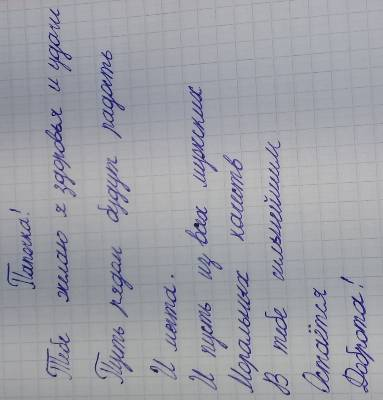 Папочка!
Тебе желаю я здоровья и удачи
Путь рядом будут радать
И мечта.
И пусть из всех мужских
Моральных качеств
В тебе сильнейшим
Остаётся
Доброта!